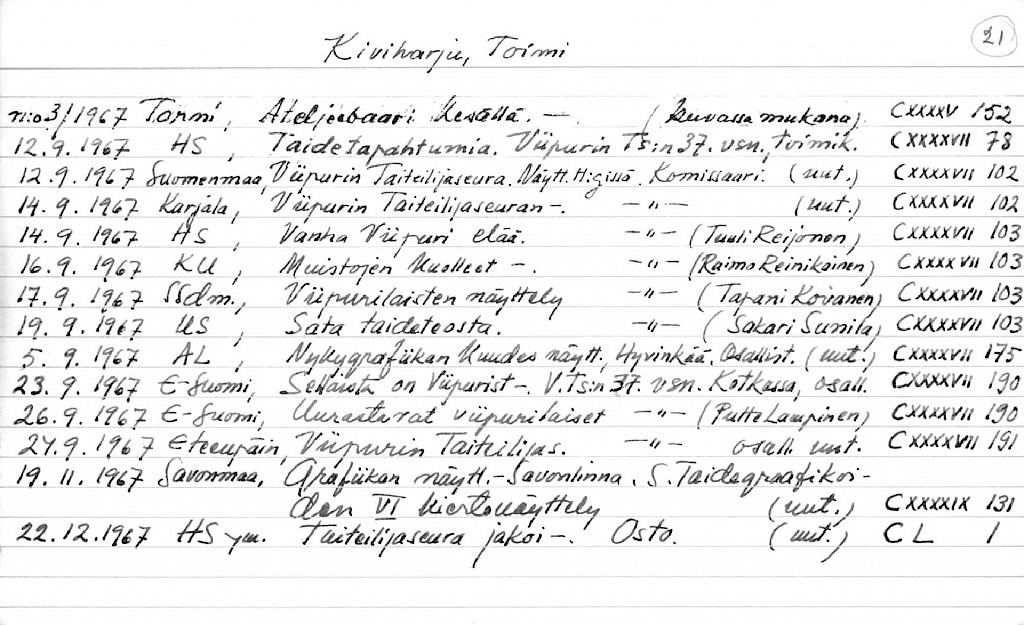 21
Kiviharju, Toimi
n:o 3/1967 Tormi, Ateljeebaari kesällä. —. (kuvassa mukana) CXXXXV 152
12.9.1967 HS, Taidetapahtumia. Viipurin Ts:n 37. vsn., toimik. CXXXXVII 78
12.9.1967 Suomenmaa, Viipurin Taiteilijaseura. Näytt. H:gissä. Komissaari. (uut.) CXXXXVII 102
14.9.1967 Karjala, Viipurin Taiteilijaseuran —. —"— (uut.) CXXXXVII 102
14.9.1967 HS, Vanha Viipuri elää. —"— (Tuuli Reijonen) CXXXXVII 103
16.9.1967 KU, Muistojen kuolleet —. —"— (Raimo Reinikainen) CXXXXVII 103
17.9.1967 SSdm., Viipurilaisten näyttely —"— (Tapani Kovanen) CXXXXVII 103
19.9.1967 US, Sata taideteosta. —"— (Sakari Sunila) CXXXXVII 103
5.9.1967 AL, Nykygrafiikan kuudes näytt., Hyvinkää. Osallist. (uut.) CXXXXVII 175
23.9.1967 E-Suomi, Sellaista on Viipurist —. V.Ts:n 37. vsn. Kotkassa, osall. CXXXXVII 190
26.9.1967 E-Suomi, Uurastavat viipurilaiset —"— (Putte Lampinen) CXXXXVII 190
27.9.1967 Eteenpäin, Viipurin Taiteilijas. —"— osall. uut. CXXXXVII 191
19.11.1967 Savonmaa, Grafiikan näytt. - Savonlinna. S. Taidegraafikoi-
den VI kiertonäyttely (uut.) CXXXXIX 131
22.12.1967 HS ym. Taiteilijaseura jakoi —. Osto. (uut.) CL 1